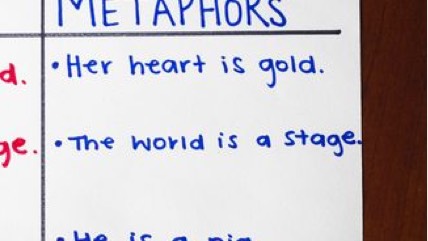 METAPHORS
d. • Her heart is gold.
ge. • The world is a stage.
• He is a pig